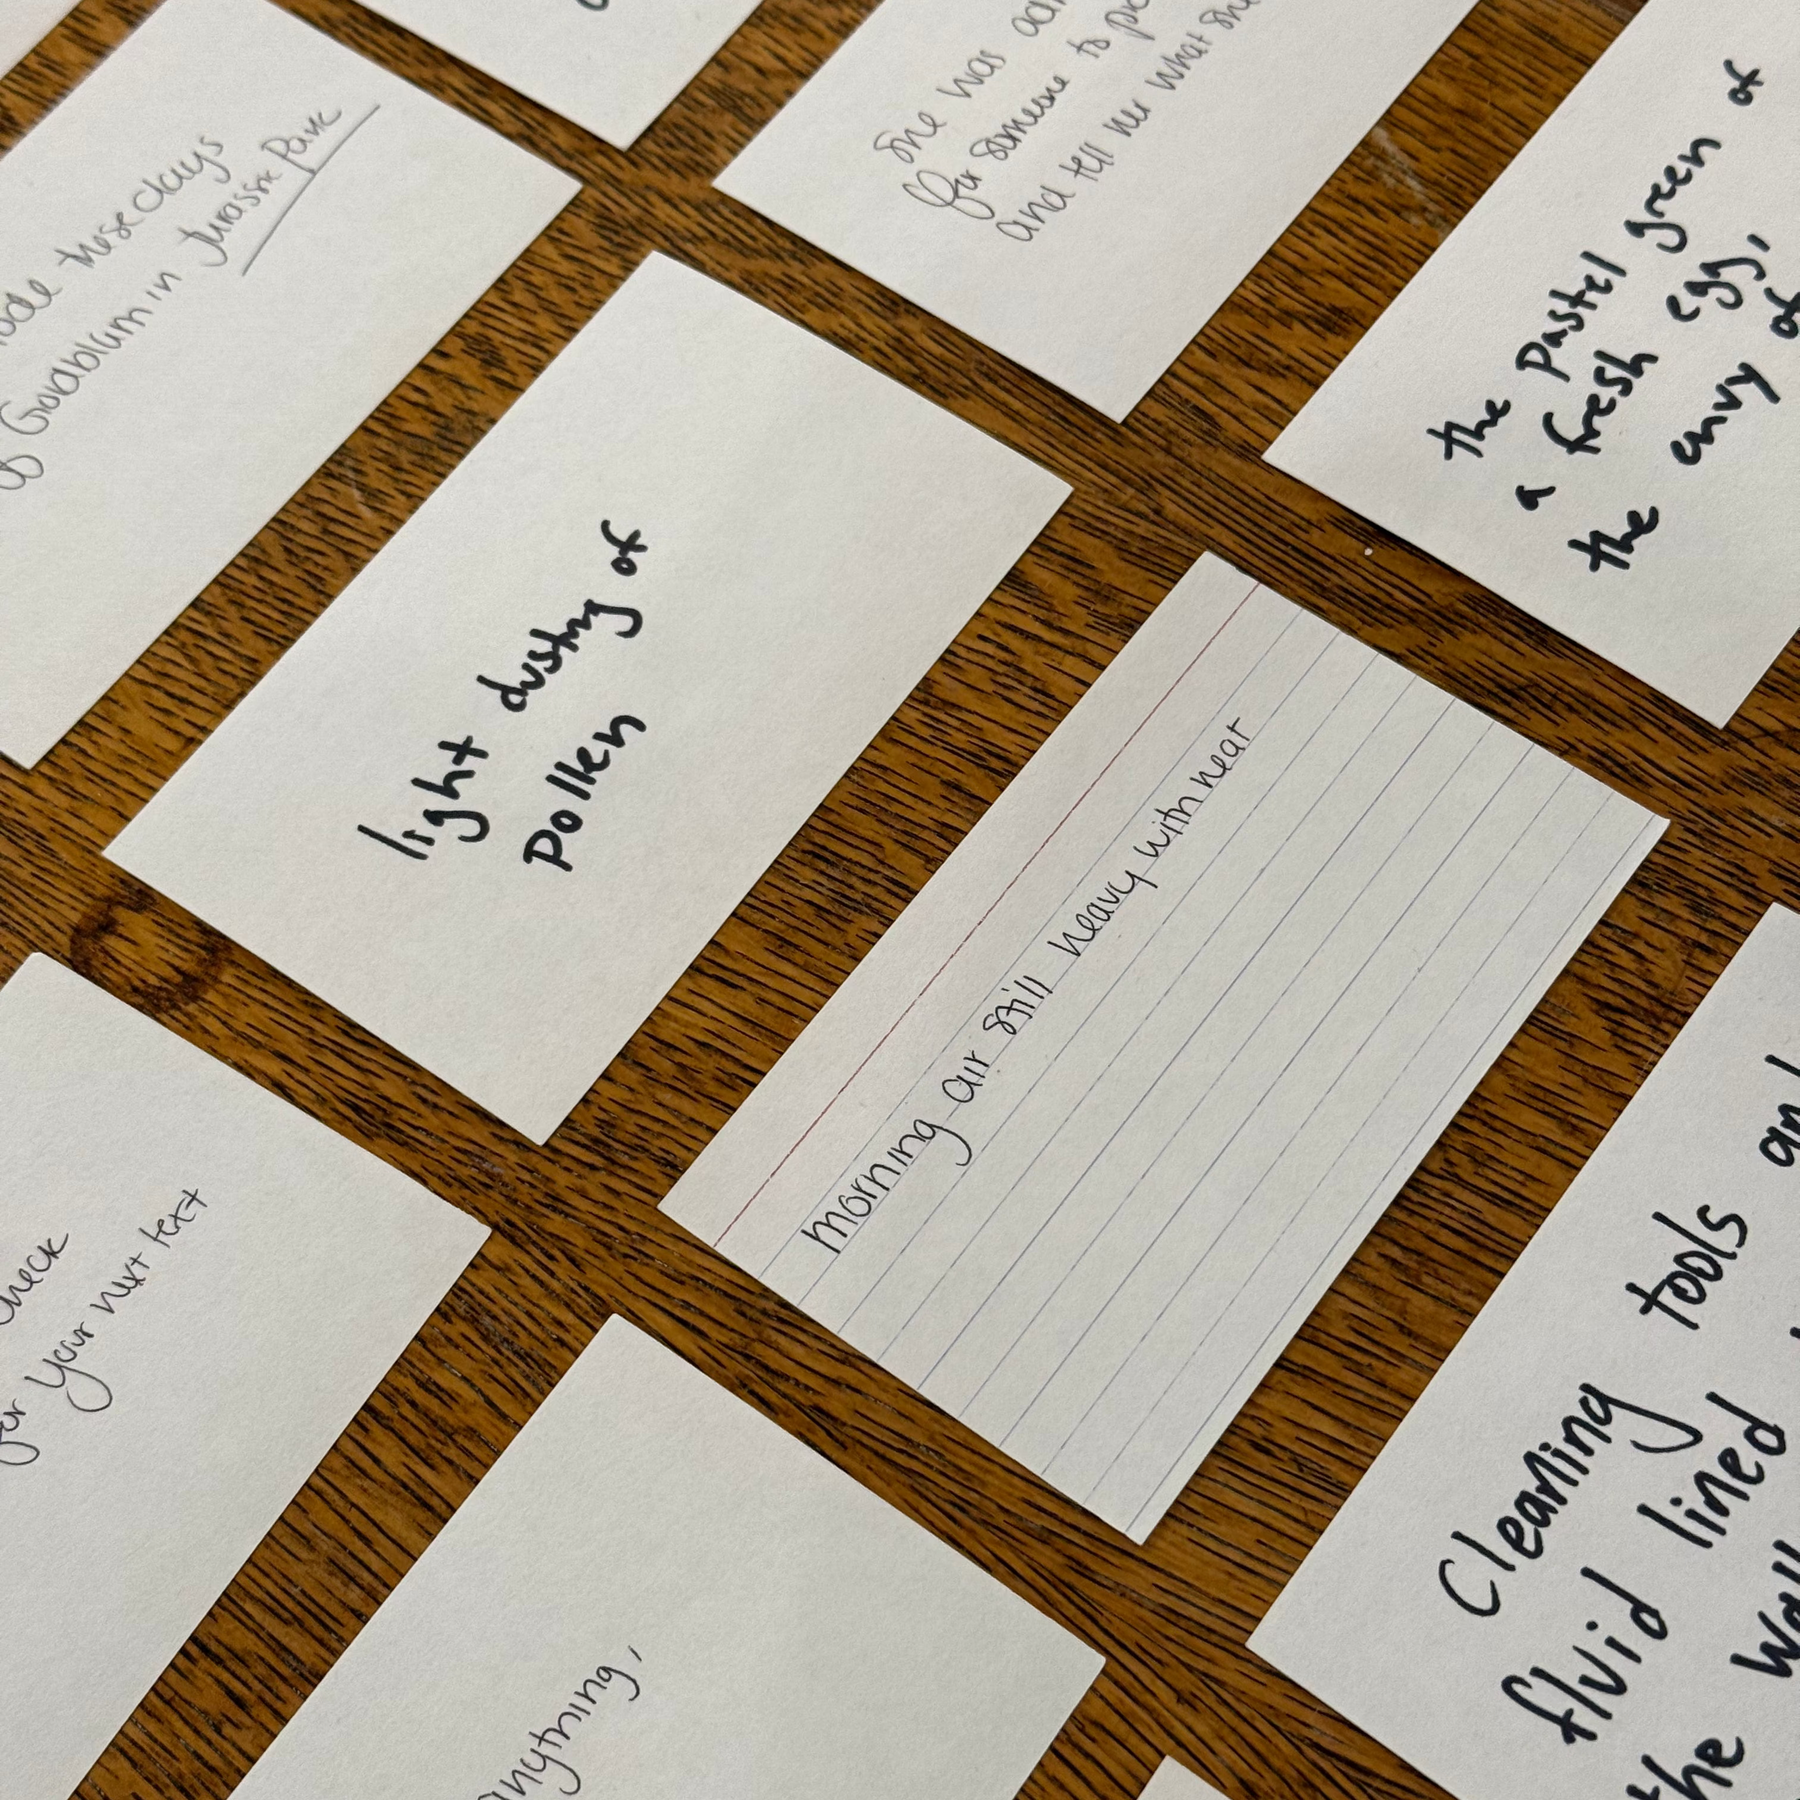 these days
Goldblum in Jurassic Park
she was
for someone to
and tell her what she
the pastel green of
a fresh egg,
the envy of
light dusting of
pollen
morning air still heavy with heat
check
for your next text
anything,
Cleaning tools and
fluid lined
the wall